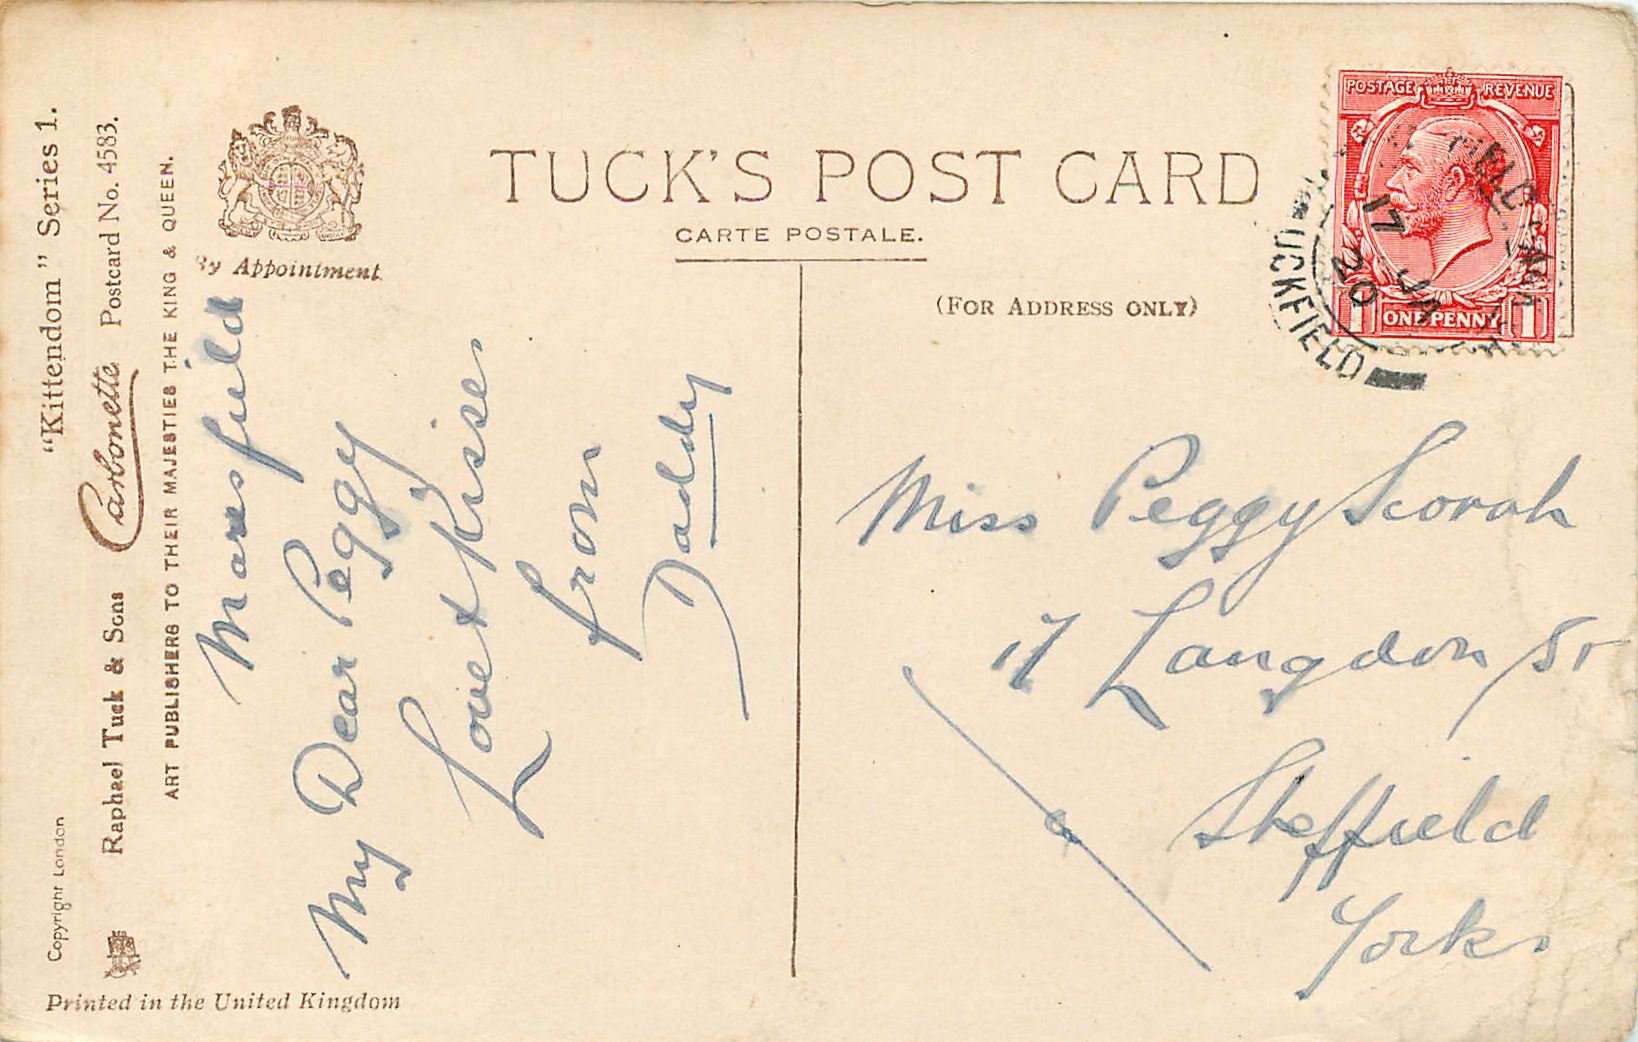 "Kittendom" Series 1.
Carbonette Postcard No. 4583.
Copyright London
Raphael Tuck & Sons
ART PUBLISHERS TO THEIR MAJESTIES THE KING & QUEEN.
By Appointment.
Printed in the United Kingdom
TUCK'S POST CARD
CARTE POSTALE.
(FOR ADDRESS ONLY)
POSTAGE REVENUE
1 ONE PENNY 1
UCKFIELD
17 JA
20
Maresfield
My Dear Peggy
Love & Kisses
from
Daddy
Miss Peggy Scorah
17 Langdon St
Sheffield
Yorks.